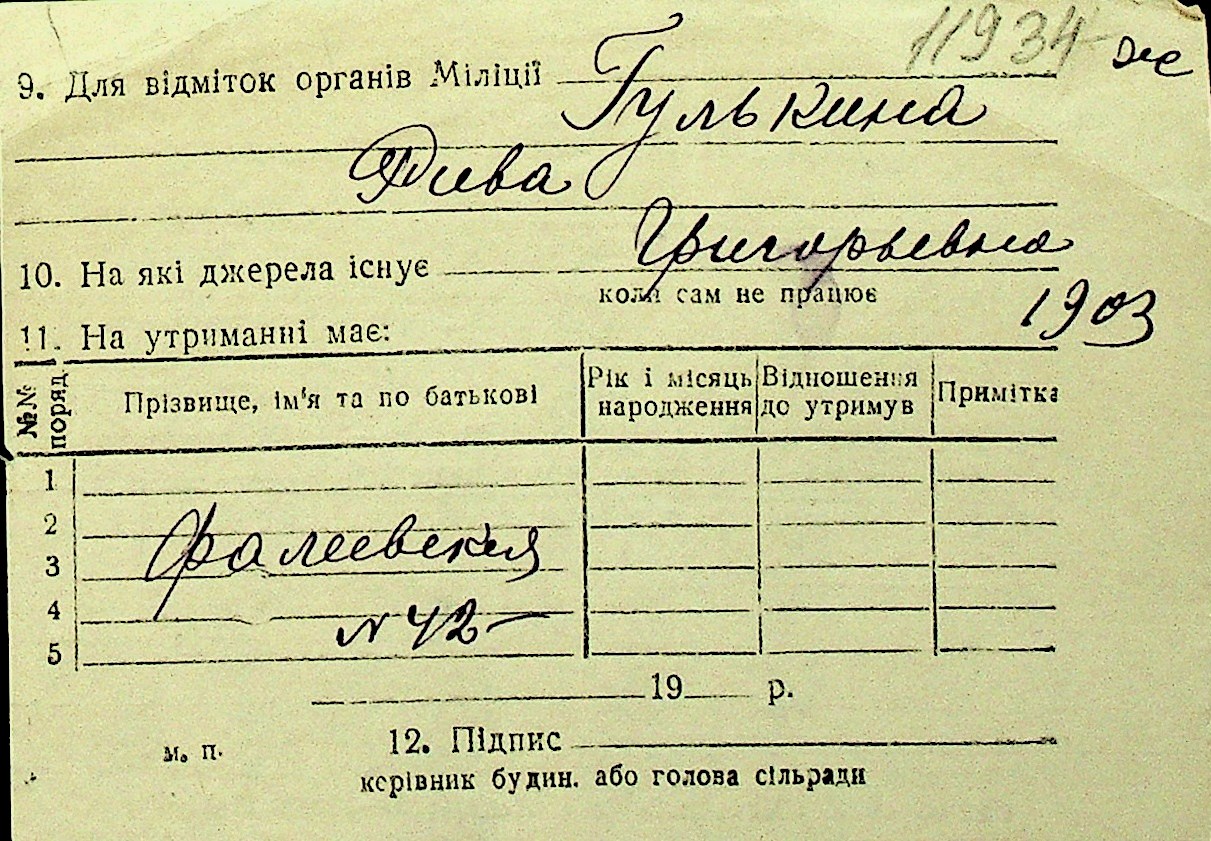 11934
9. Для відміток органів Міліції
Гулькина
Рива
Григорьевна
10. На які джерела існує
коли сам не працює
1903
11. На утриманні має:
№№ поряд. Прізвище, ім'я та по батькові Рік і місяць народження Відношення до утримув Примітка
1
2
Фалеевская
3
4
N 42
5
19 р.
м. п. 12. Підпис
керівник будин. або голова сільради